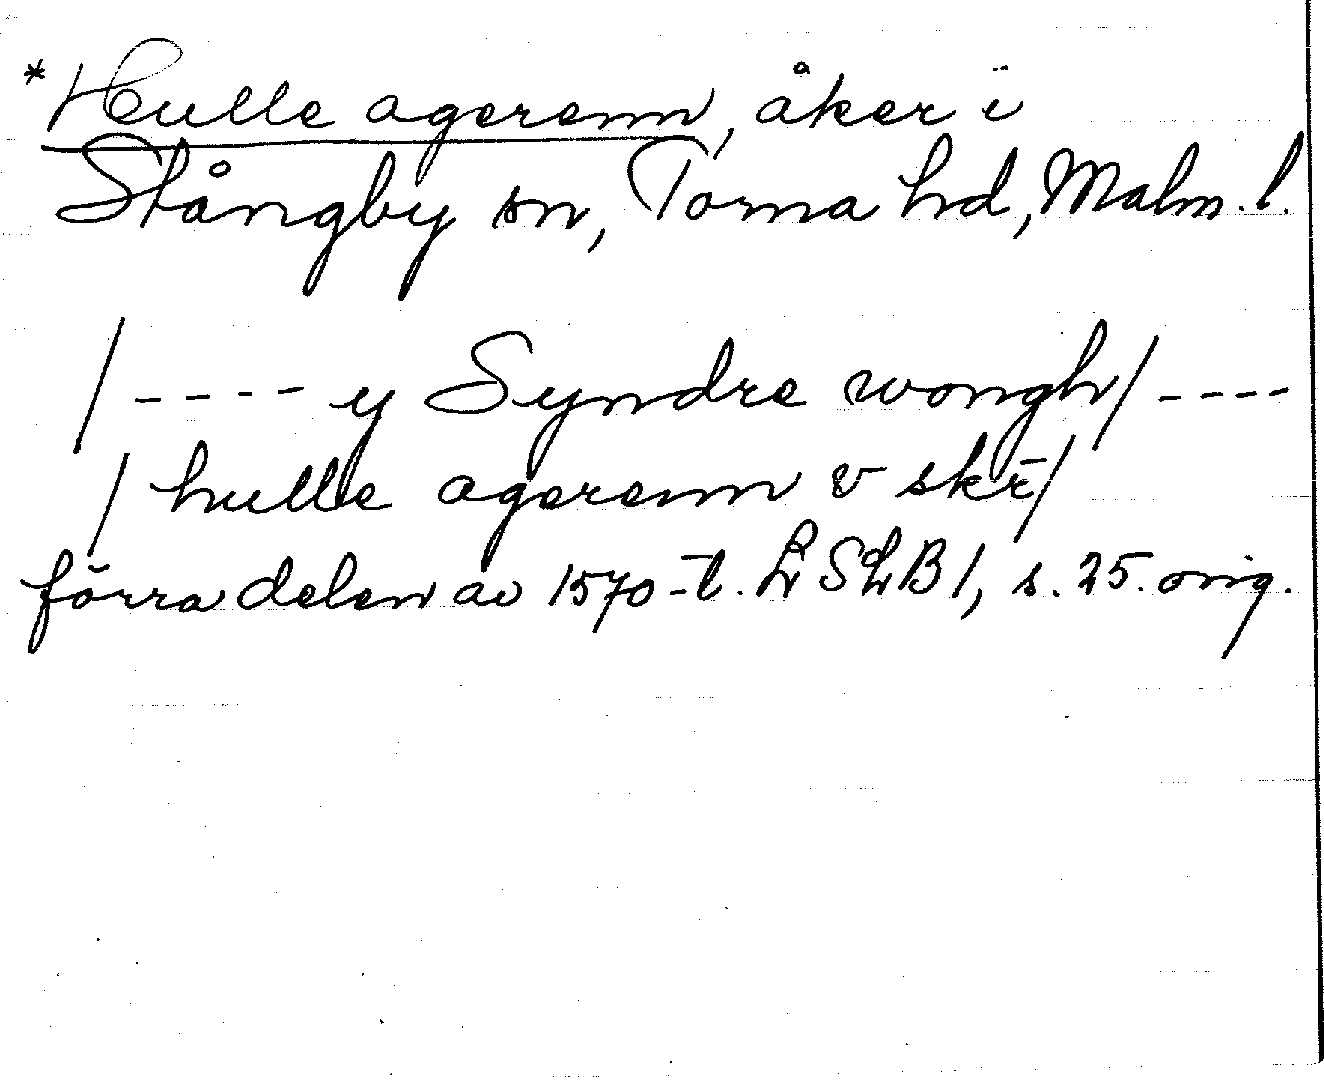 *Hulle agerenn, åker i
Stångby sn, Torna hd, Malm. l.
/---- y Syndre wongh/----
/ hulle agerenn v skr̄/
förra delen av 1570-t. LSLB 1, s. 25. orig.